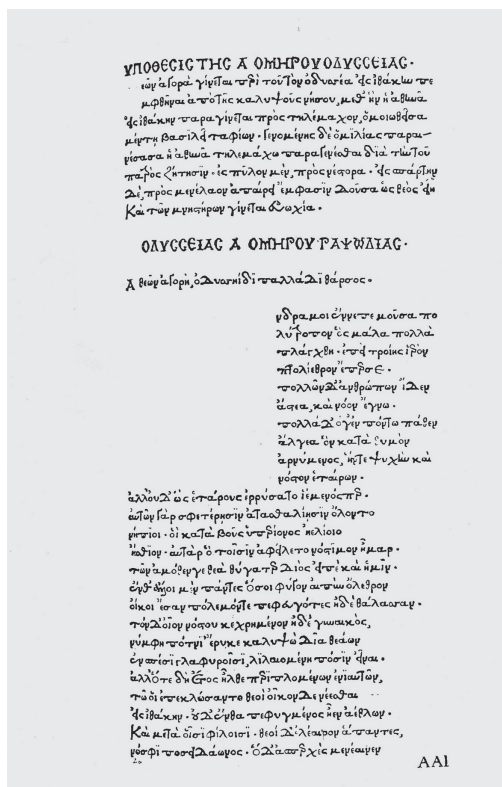 ΥΠΟΘΕΣΙΣ ΤΗΣ Α ΟΜΗΡΟΥ ΟΔΥΣΣΕΙΑΣ.
θεῶν ἀγορὰ γίνεται περὶ τοῦ τὸν ὀδυσσέα εἰς ἰθάκην πε
μφθῆναι ἀπὸ τῆς καλυψοῦς νήσου, μεθ' ἣν ἡ ἀθηνᾶ
εἰς ἰθάκην παραγίνεται πρὸς τηλέμαχον, ὁμοιωθεῖσα
μέντῃ βασιλεῖ ταφίων. γενομένης δὲ ὁμιλίας παρα-
νέσασα ἡ ἀθηνᾶ τηλεμάχω παραγενέσθαι διὰ τὴν τοῦ
πατρὸς ζήτησιν. ἐς πύλον μὲν, πρὸς νέστορα. εἰς σπάρτην
δὲ, πρὸς μενέλαον ἀπαίρει ἔμφασιν δοῦσα ὡς θεὸς εἴη
Καὶ τῶν μνηστήρων γίνεται εὐωχία.
ΟΔΥΣΣΕΙΑΣ Α ΟΜΗΡΟΥ ΡΑΨΩΔΙΑΣ.
Α θεῶν ἀγορὴ, ὀδυσηίδι παλλάδι θάρσος.
νδρα μοι ἔννεπε μοῦσα πο
λύτροπον ὃς μάλα πολλὰ
πλάγχθη. ἐπεὶ τροίης ἱερὸν
πτολίεθρον ἔπερσε.
πολλῶν δ' ἀνθρώπων ἴδεν
ἄστεα, καὶ νόον ἔγνω.
πολλὰ δ' ὅγ' ἐν πόντω πάθεν
ἄλγεα ὃν κατὰ θυμὸν
ἀρνύμενος, ἥν τε ψυχὴν καὶ
νόστον ἑταίρων.
ἀλλ' οὐδ' ὣς ἑτάρους ἐρρύσατο ἱέμενός περ.
αὐτῶν γὰρ σφετέρησιν ἀτασθαλίησιν ὄλοντο
νήπιοι. οἳ κατὰ βοῦς ὑπερίονος ἠελίοιο
ἤσθιον. αὐτὰρ ὁ τοῖσιν ἀφείλετο νόστιμον ἦμαρ.
τῶν ἁμόθεν γε θεὰ θύγατερ διὸς εἰπὲ καὶ ἡμῖν.
ἔνθ' ἄλλοι μὲν πάντες ὅσοι φύγον αἰπὺν ὄλεθρον
οἴκοι ἔσαν πόλεμόν τε πεφευγότες ἠδὲ θάλασσαν.
τὸν δ' οἶον νόστου κεχρημένον ἠδὲ γυναικὸς,
νύμφη πότνι' ἔρυκε καλυψὼ δῖα θεάων
ἐν σπέσσι γλαφυροῖσι, λιλαιομένη πόσιν εἶναι.
ἀλλ' ὅτε δὴ ἔτος ἦλθε περιπλομένων ἐνιαυτῶν,
τῶ οἱ ἐπεκλώσαντο θεοὶ οἶκον δὲ νέεσθαι
εἰς ἰθάκην. οὐδ' ἔνθα πεφυγμένος ἦεν ἀέθλων.
Καὶ μετὰ οἷσι φίλοισι. θεοὶ δ' ἐλέαιρον ἅπαντες,
νόσφι ποσειδάωνος. ὁ δ' ἀσπερχὲς μενέαινεν
AA1